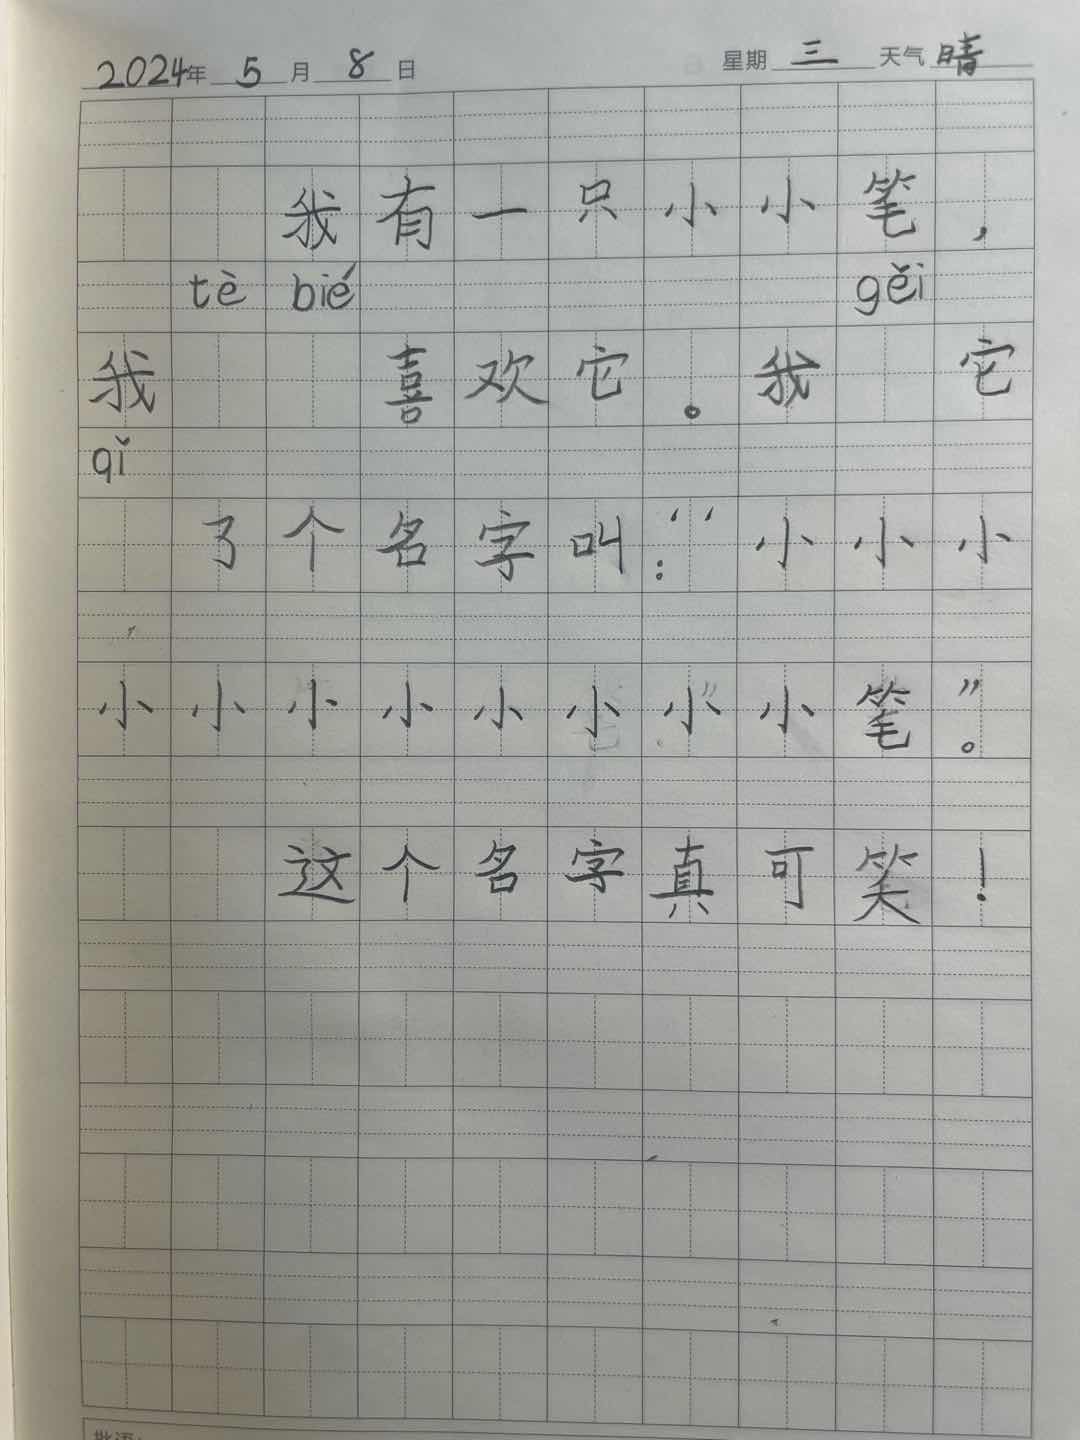 2024年 5 月 8 日 星期 三 天气 晴
我有一只小小笔，
tè bié gěi
我 喜欢它。我 它
qǐ
了个名字叫：“小小小
小小小小小小小小笔”。
这个名字真可笑！